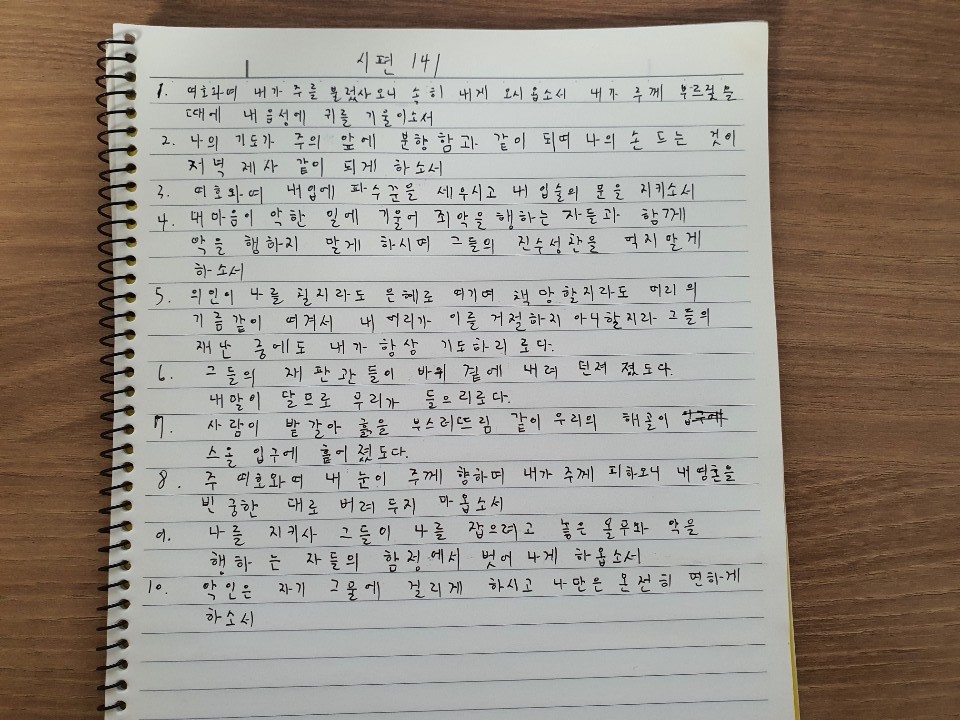 시편 141
1. 여호와여 내가 주를 불렀사오니 속히 내게 오시옵소서 내가 주께 부르짖을
때에 내 음성에 귀를 기울이소서
2. 나의 기도가 주의 앞에 분향함과 같이 되며 나의 손 드는 것이
저녁 제사 같이 되게 하소서
3. 여호와여 내 입에 파수꾼을 세우시고 내 입술의 문을 지키소서
4. 내 마음이 악한 일에 기울어 죄악을 행하는 자들과 함께
악을 행하지 말게 하시며 그들의 진수성찬을 먹지 말게
하소서
5. 의인이 나를 칠지라도 은혜로 여기며 책망할지라도 머리의
기름같이 여겨서 내 머리가 이를 거절하지 아니할지라 그들의
재난 중에도 내가 항상 기도하리로다.
6. 그들의 재판관들이 바위 곁에 내려 던져 졌도다.
내말이 달므로 무리가 들으리로다.
7. 사람이 밭 갈아 흙을 부스러뜨림 같이 우리의 해골이 입구에
스올 입구에 흩어 졌도다.
8. 주 여호와여 내 눈이 주께 향하며 내가 주께 피하오니 내영혼을
빈궁한 대로 버려 두지 마옵소서
9. 나를 지키사 그들이 나를 잡으려고 놓은 올무와 악을
행하는 자들의 함정에서 벗어 나게 하옵소서
10. 악인은 자기 그물에 걸리게 하시고 나만은 온전히 면하게
하소서